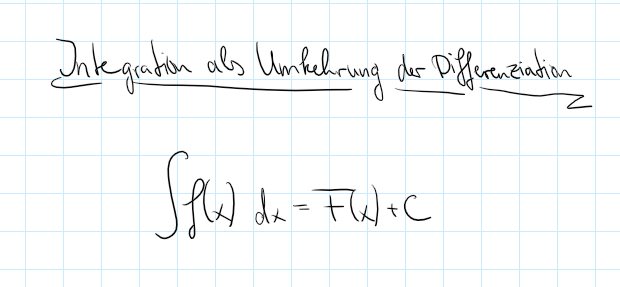 Integration als Umkehrung der Differenziation
∫f(x) dx = F(x) + C